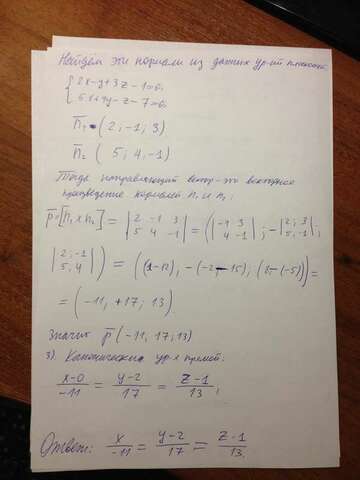 Найдем эти нормали из данных ур-ий плоскостей
{ 2x-y+3z-1=0,
5x+4y-z-7=0,
n̄₁ (2; -1; 3)
n̄₂ (5; 4, -1)
Тогда направляющий вектор-это векторное
произведение нормалей n₁ и n₂:
p̄=[n₁ x n₂] = |2 -1 3; 5 4 -1| = (|-1 3; 4 -1|; -|2; 3; 5, -1|;
|2; -1; 5, 4|) = ((1-12), -(-2-15); (8-(-5))) =
= (-11, +17; 13).
Значит p̄(-11, 17; 13)
3). Канонические ур-я прямой:
(x-0)/-11 = (y-2)/17 = (z-1)/13;
Ответ: x/-11 = (y-2)/17 = (z-1)/13.